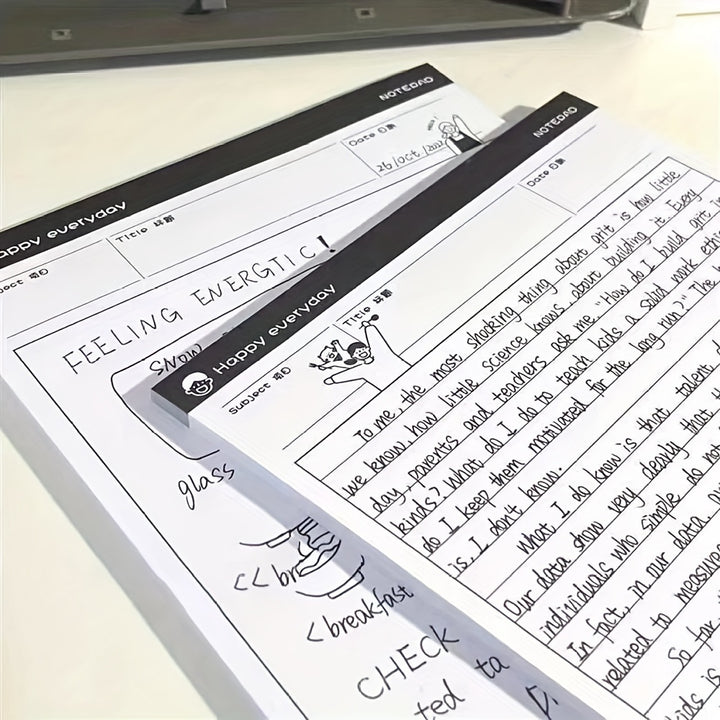 NOTEPAD
Happy everyday
Title 标题
Date 日期
26/Oct/202
FEELING ENERGTIC!
SNOW
glass
<< br
< breakfast
CHECK
ted ta
D.
NOTEPAD
Happy everyday
Subject 项目
Title 标题
Date 日期
To me, the most shocking thing about grit is how little
we know, how little science knows, about building it. Every
day, parents and teachers ask me, "How do I build grit in
kinds? What do I do to teach kids a solid work ethic
do I keep them motivated for the long run?" The
is, I don't know.
What I do know is that talent d
Our data show very clearly that
individuals who simple do not
In fact, in our data, gri
related to measure
So far
kids is